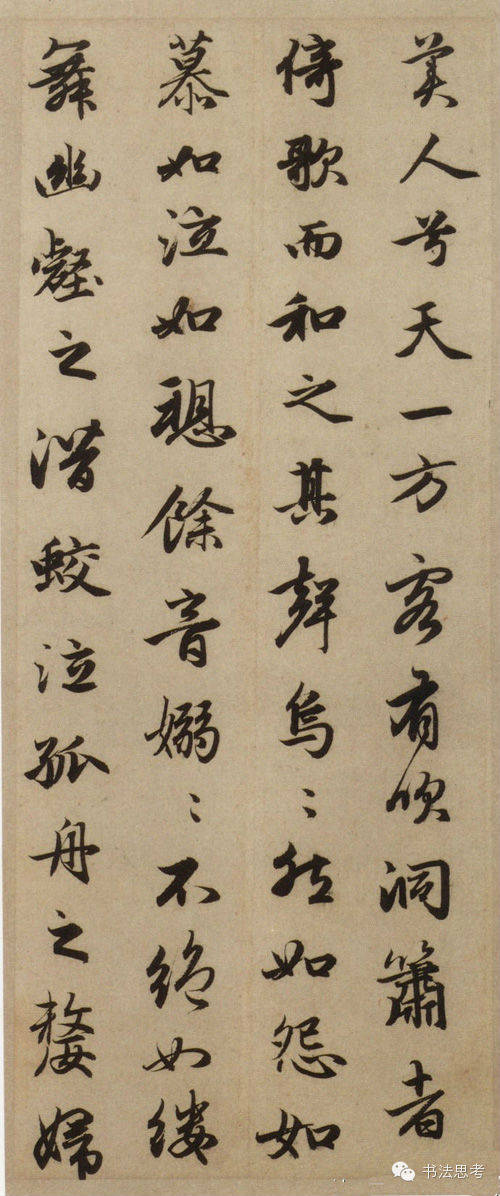 美人兮天一方客有吹洞簫者
倚歌而和之其聲烏〻然如怨如
慕如泣如愬餘音嫋〻不絕如縷
舞幽壑之潛蛟泣孤舟之嫠婦
书法思考